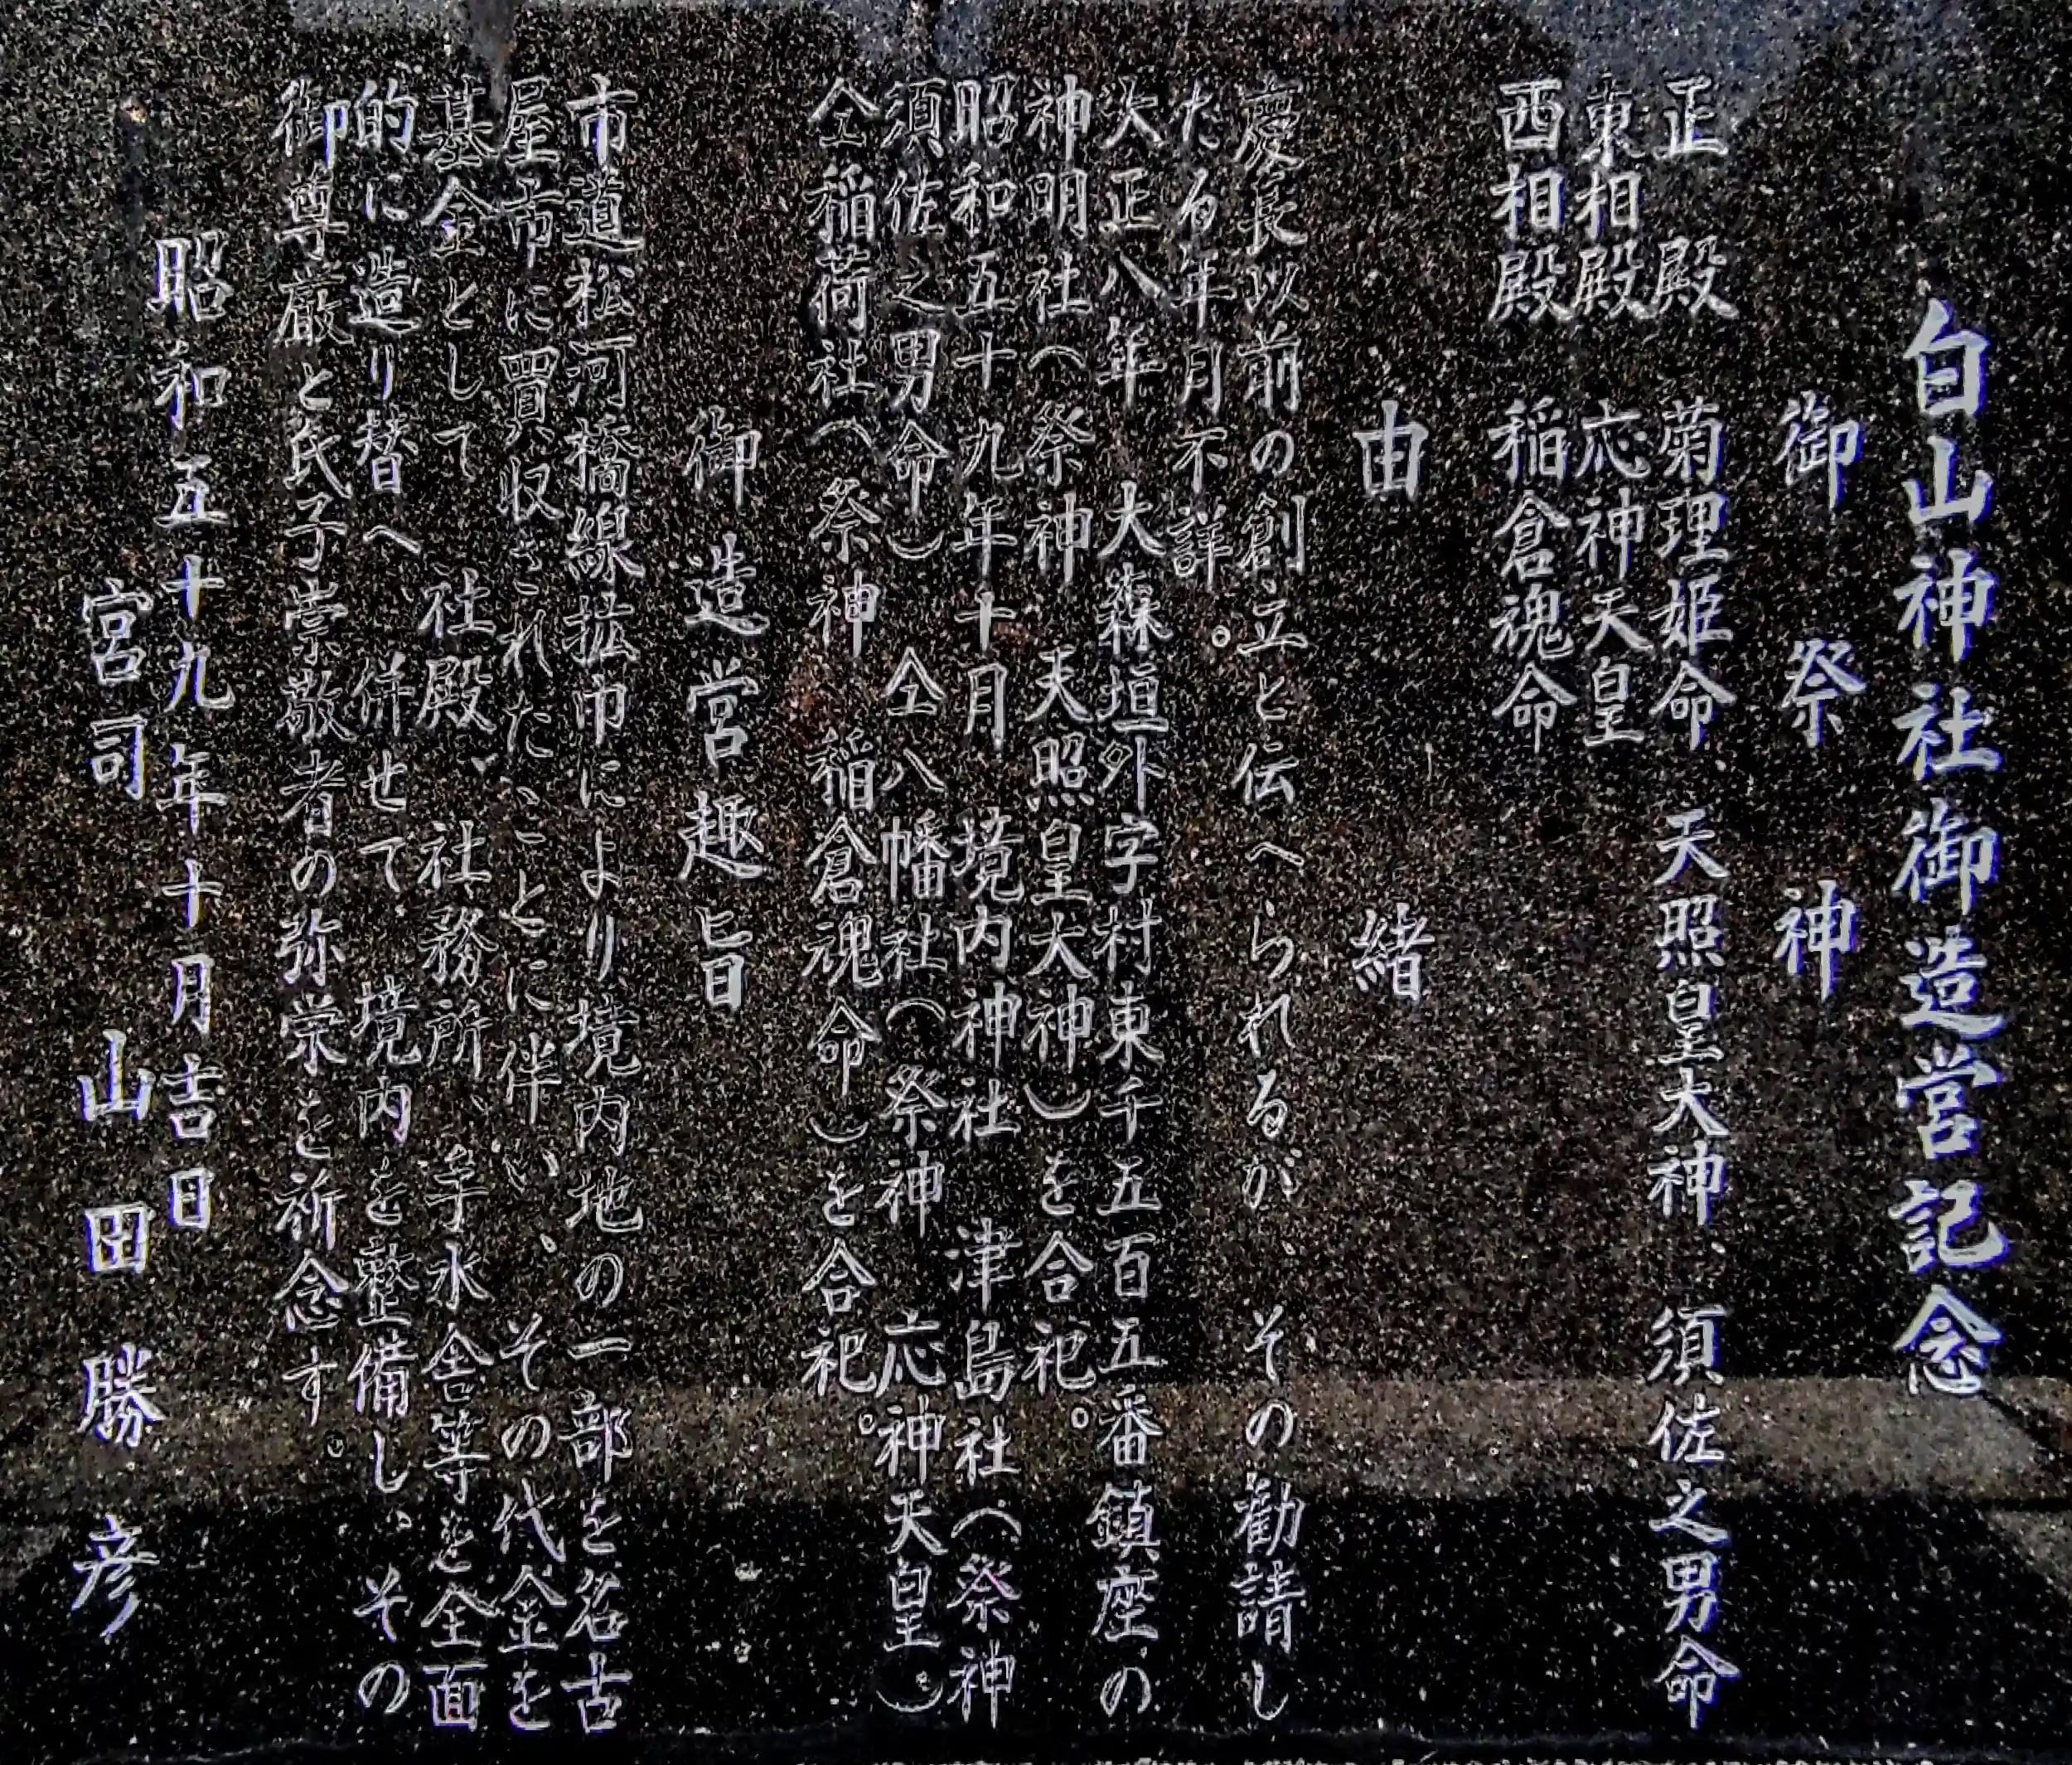 白山神社御造営記念
御祭神
正殿 菊理姫命、天照皇大神、須佐之男命
東相殿 応神天皇
西相殿 稲倉魂命
由緒
慶長以前の創立と伝へられるが、その勧請し
たる年月不詳。
大正八年 大森垣外字村東千五百五番鎮座の
神明社（祭神 天照皇大神）を合祀。
昭和五十九年十月 境内神社 津島社（祭神
須佐之男命） 仝八幡社（祭神 応神天皇）
仝稲荷社（祭神 稲倉魂命）を合祀。
御造営趣旨
市道松河橋線拡巾により境内地の一部を名古
屋市に買収されたことに伴い、その代金を
基金として 社殿、社務所、手水舎等を全面
的に造り替へ 併せて 境内を整備し、その
御尊厳と氏子崇敬者の弥栄を祈念す。
昭和五十九年十月吉日
宮司 山田勝彦